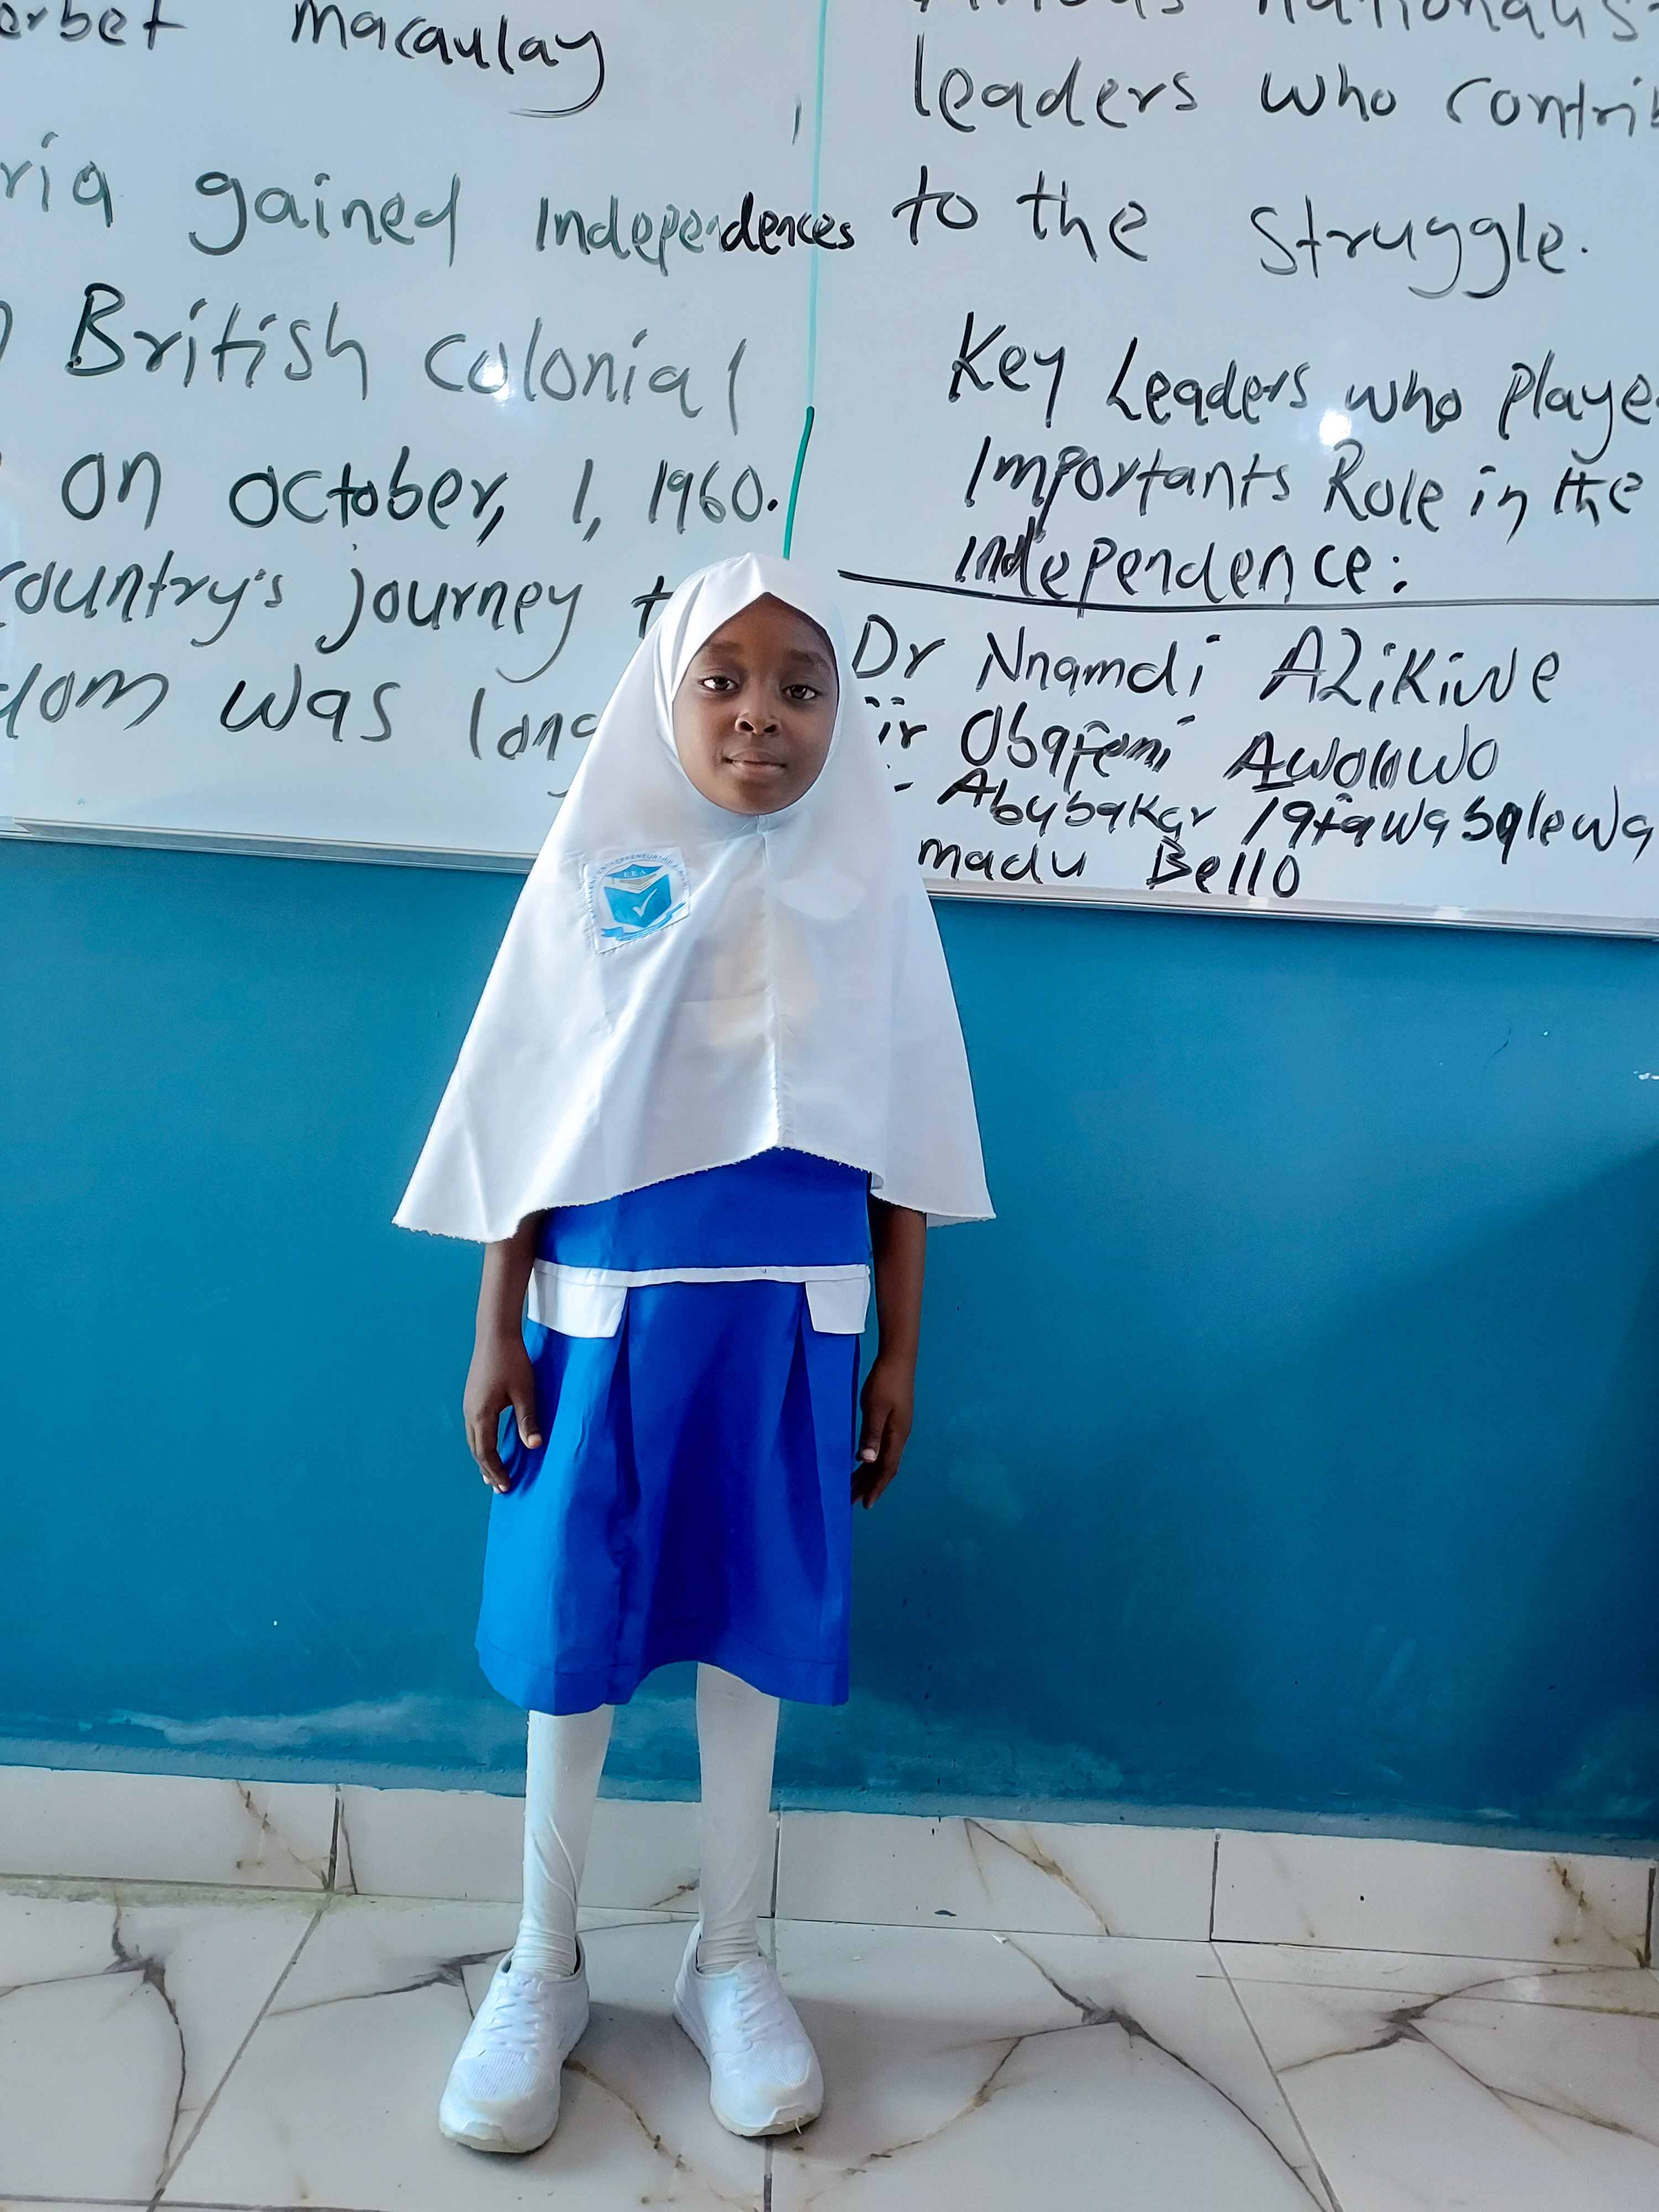 Macaulay
gained Independences
British Colonial
on October, 1, 1960.
country's journey
was long
leaders who
to the struggle.
Key Leaders who
Importants Role in the
independence:
Dr Nnamdi Azikiwe
Obafemi Awolowo
Abubakar Tafawabalewa
madu Bello
EEA